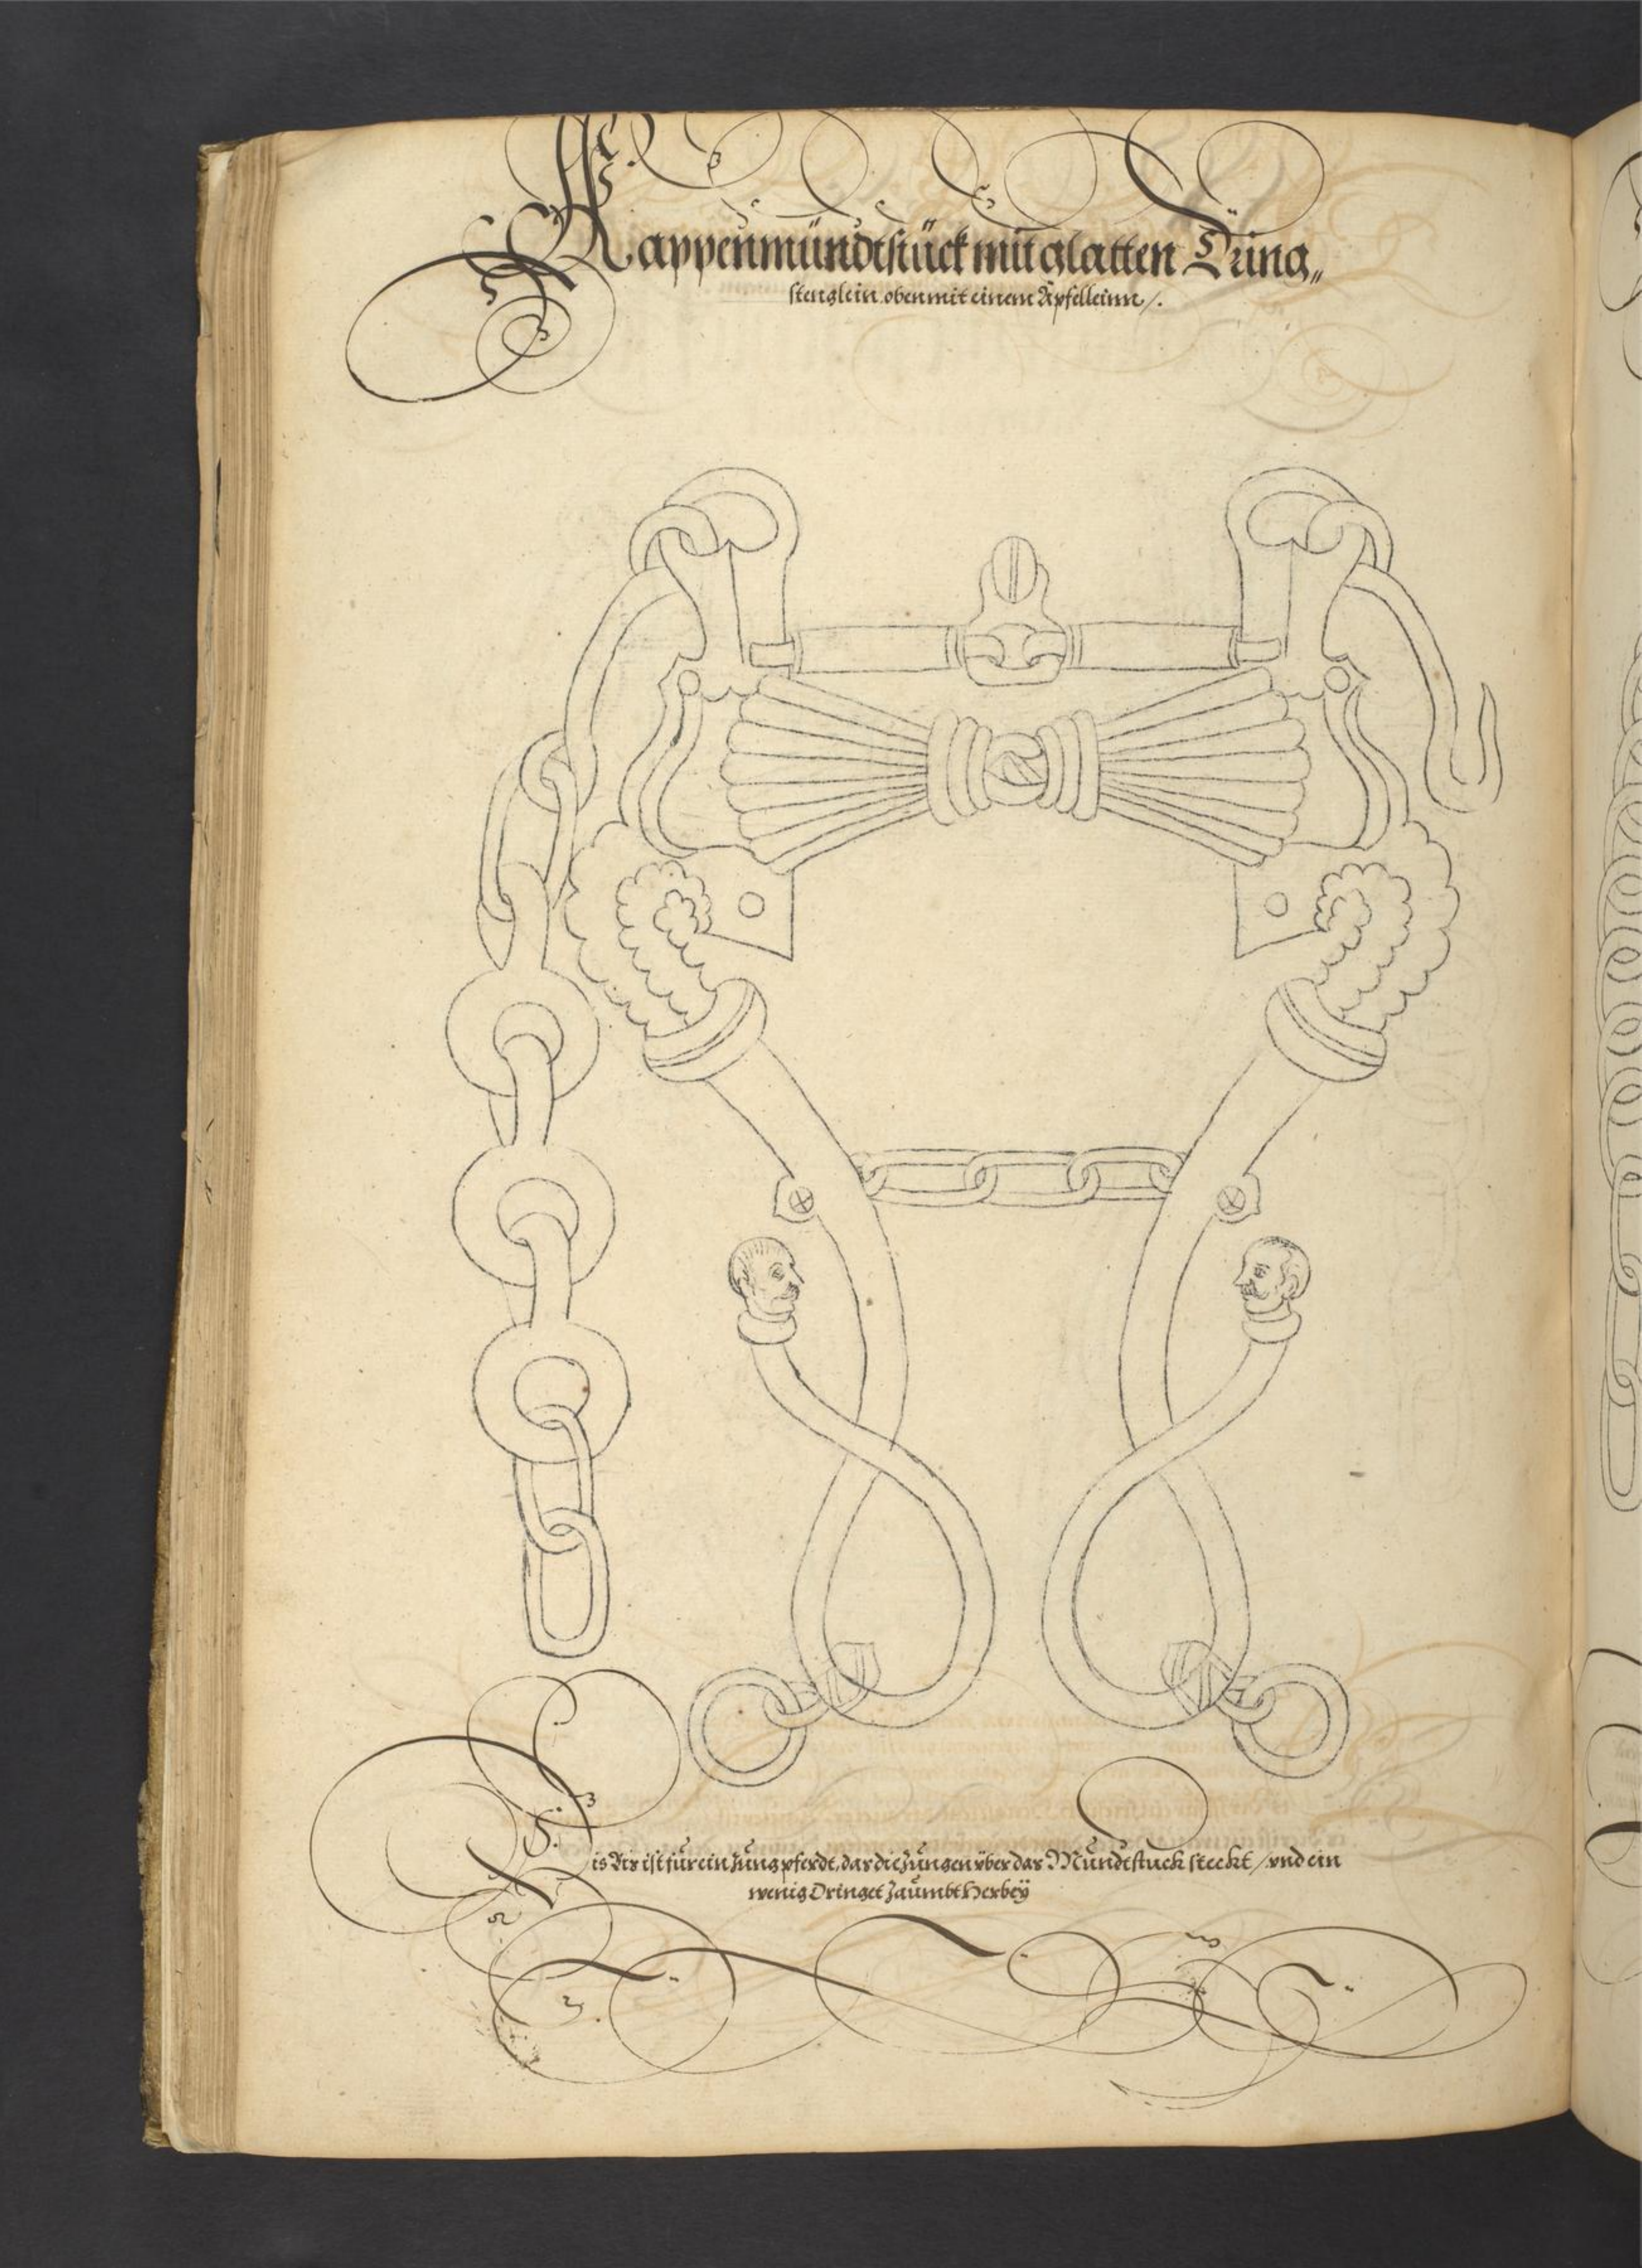 Kappenmündtstück mit glatten Dring„
stenglein oben mit einem Äpffelleinn /.
Dis Bis ist fur ein Jung pferdt, das die Zungen vber das Mundtstuck steckt / vnd ein
wenig Dringet Zaumbt Herbeÿ